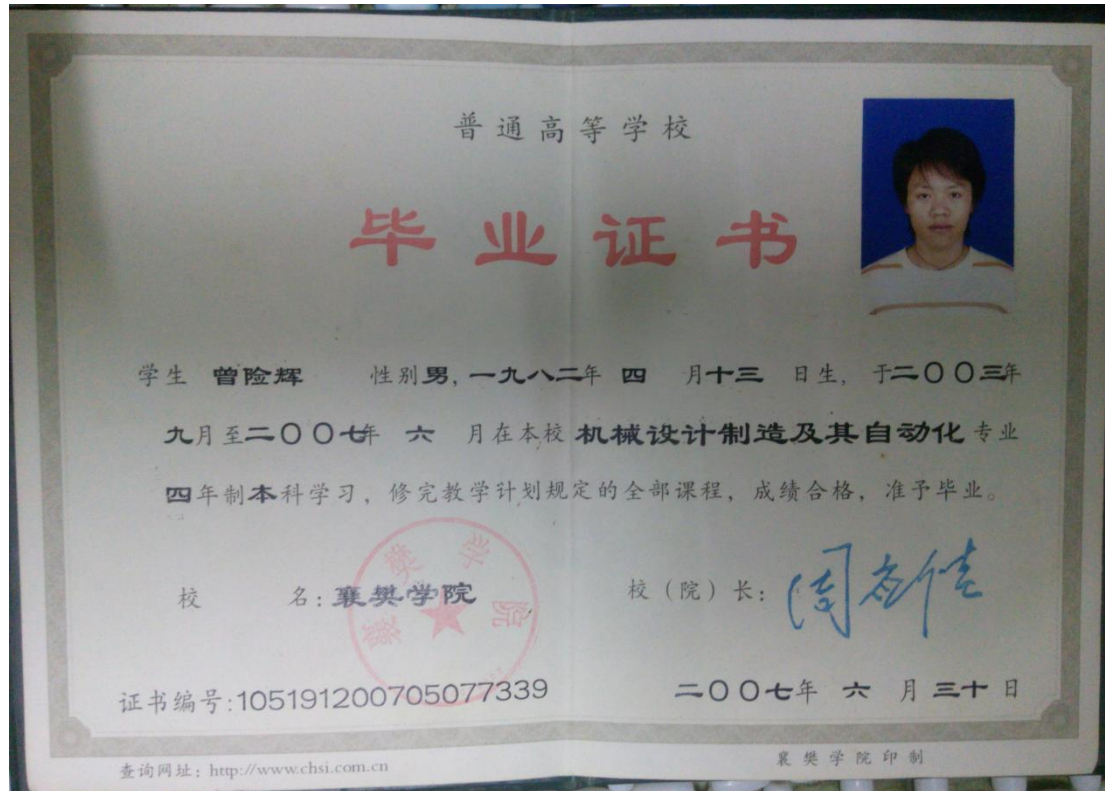 普通高等学校
毕业证书
学生 曾险辉 性别男，一九八二年 四 月十三 日生，于二〇〇三年
九月至二〇〇七年 六 月在本校 机械设计制造及其自动化 专业
四年制本科学习，修完教学计划规定的全部课程，成绩合格，准予毕业。
校 名：襄樊学院
襄樊学院
校（院）长：
证书编号：105191200705077339
二〇〇七年 六 月 三十 日
查询网址：http://www.chsi.com.cn
襄樊学院印制